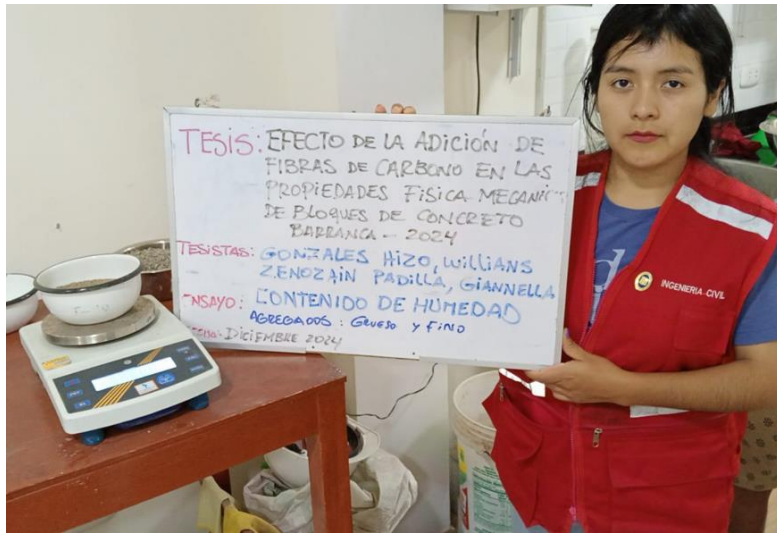 TESIS: EFECTO DE LA ADICIÓN DE
FIBRAS DE CARBONO EN LAS
PROPIEDADES FISICA MECANIC
DE BLOQUES DE CONCRETO
BARRANCA - 2024
TESISTAS: GONZALES HIZO, WILLIANS
ZENOZAIN PADILLA, GIANNELLA
ENSAYO: CONTENIDO DE HUMEDAD
AGREGADOS: GRUESO Y FINO
DICIEMBRE 2024
INGENIERIA CIVIL